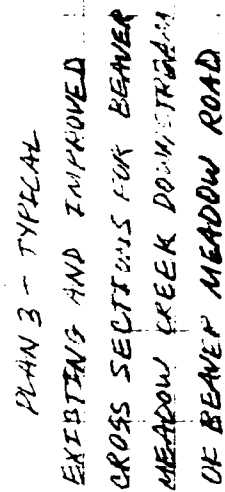 PLAN 3 - TYPICAL
EXISTING AND IMPROVED
CROSS SECTIONS FOR BEAVER
MEADOW CREEK DOWNSTREAM
OF BEAVER MEADOW ROAD